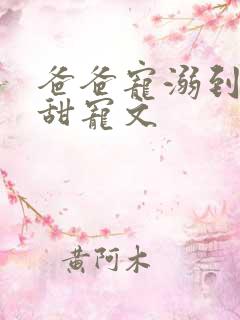 爸爸寵溺到
甜寵文
黃阿木